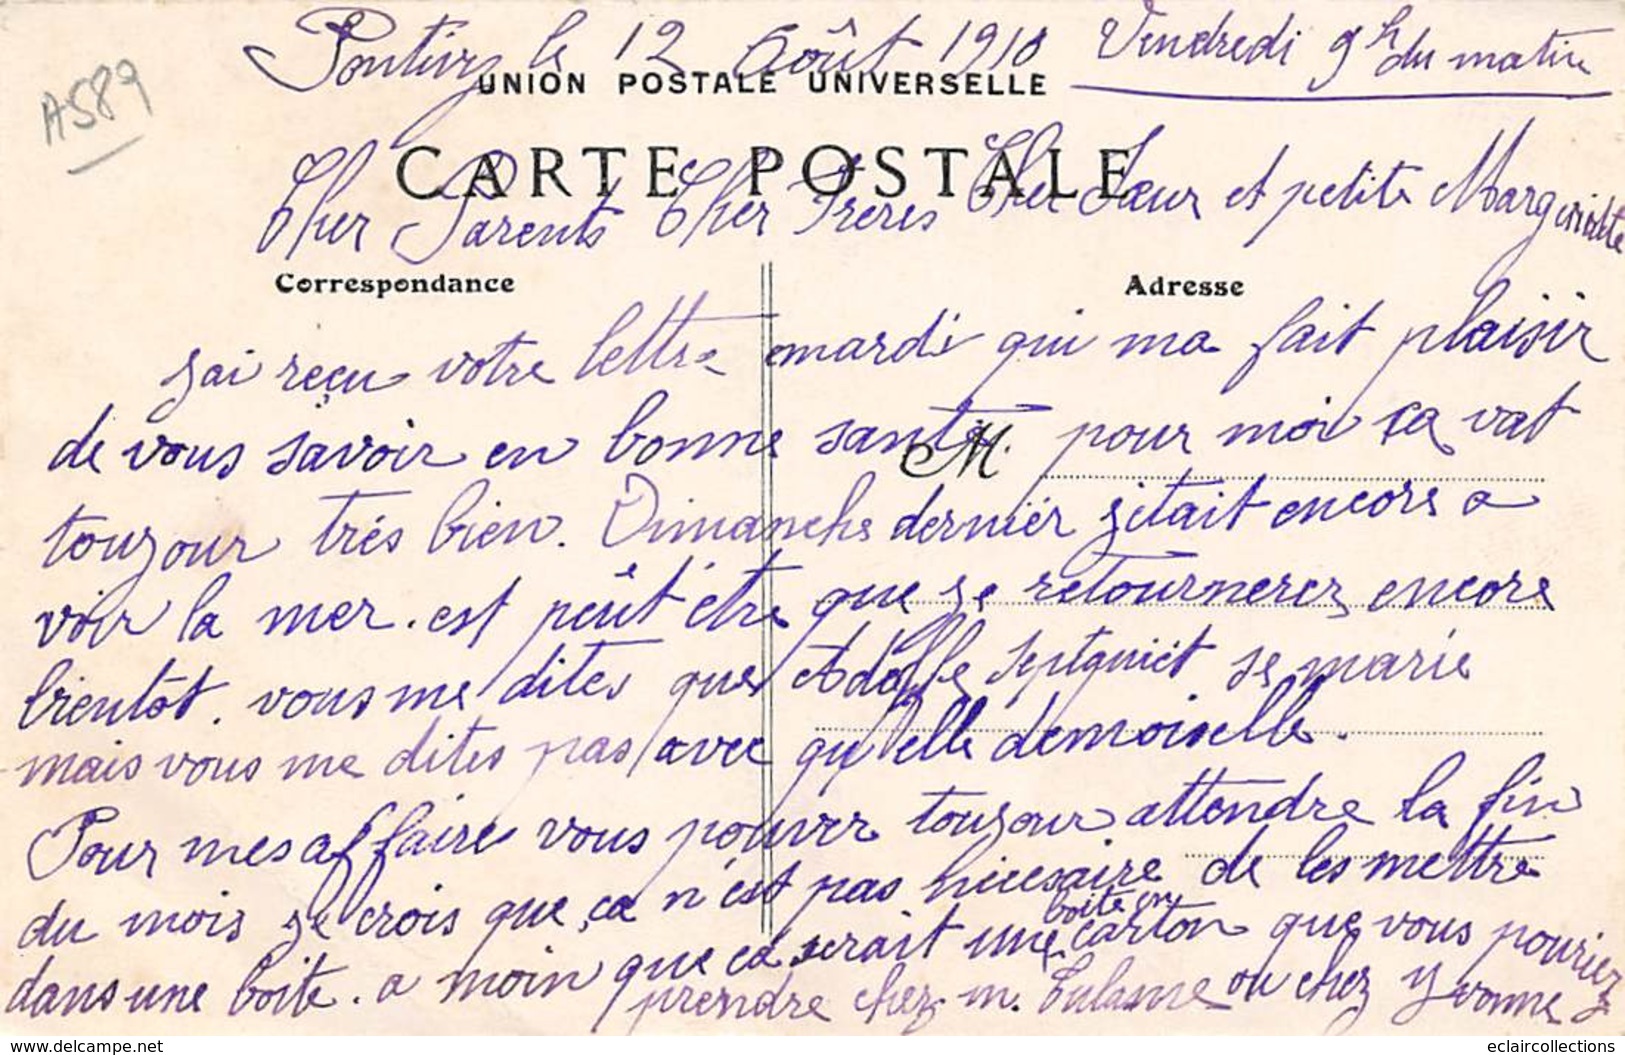 A589
Pontivy le 12 Août 1910 Vendredi 9h du matin
UNION POSTALE UNIVERSELLE
CARTE POSTALE
Cher Parents Cher Frères Cher Sœur et petite Margueritte
Correspondance
Adresse
jai reçu votre lettre mardi qui ma fait plaisir
de vous savoir en bonne santé pour moi ça vat
M.
toujour trés bien. Dimanche dernier jétait encore a
voir la mer. est peût être que je retournerez encore
bientôt. vous me dites que Adolffe se marie
mais vous me dites pas avec qu'elle demoiselle.
Pour mes affaire vous pouver toujour attendre la fin
du mois je crois que ça n'est pas nécesaire de les mettre
dans une boite. a moin que ça serait une boite en carton que vous pouriez
prendre chez m. ou chez Yvonne
www.delcampe.net
eclaircollections